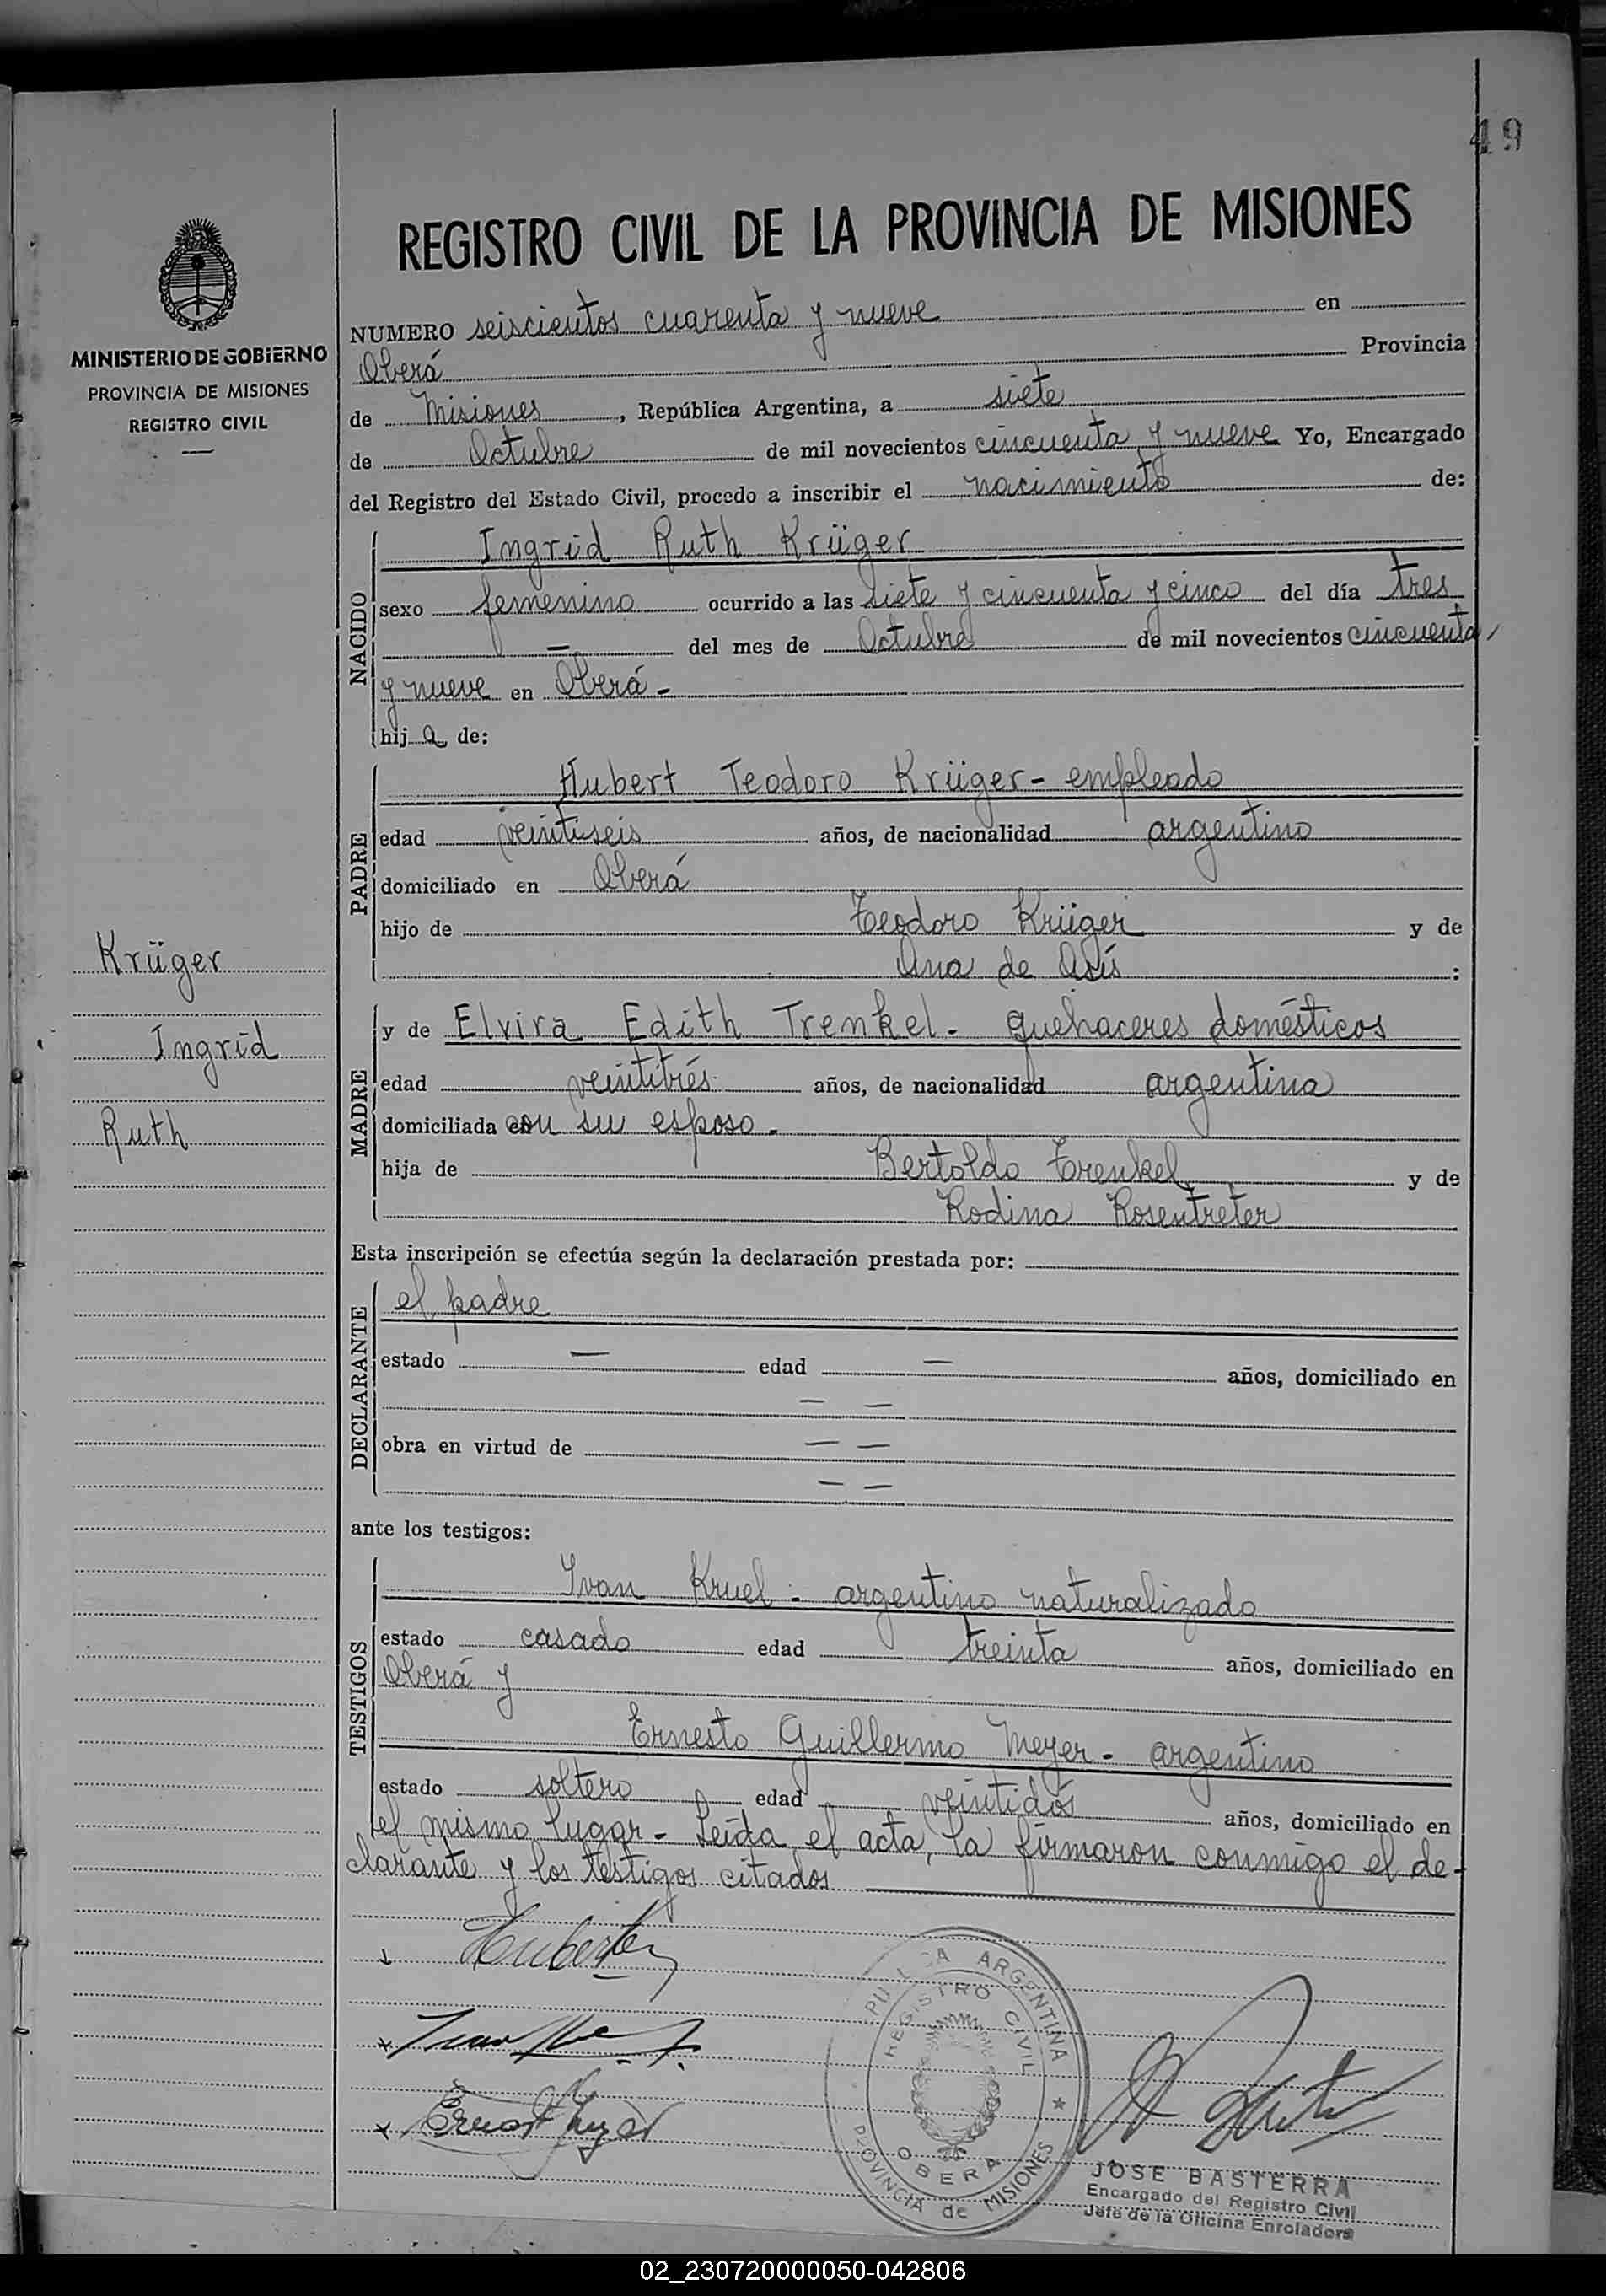 49
REGISTRO CIVIL DE LA PROVINCIA DE MISIONES
MINISTERIO DE GOBIERNO
PROVINCIA DE MISIONES
REGISTRO CIVIL
NUMERO seiscientos cuarenta y nueve en
Oberá Provincia
de Misiones, República Argentina, a siete
de Octubre de mil novecientos cincuenta y nueve Yo, Encargado
del Registro del Estado Civil, procedo a inscribir el nacimiento de:
NACIDO
Ingrid Ruth Krüger
sexo femenino ocurrido a las siete y cincuenta y cinco del día tres
— del mes de Octubre de mil novecientos cincuenta
y nueve en Oberá -
hija de:
PADRE
Hubert Teodoro Krüger - empleado
edad veintiseis años, de nacionalidad argentino
domiciliado en Oberá
hijo de Teodoro Krüger y de
Ana de Asís :
Krüger
Ingrid
Ruth
MADRE
y de Elvira Edith Trenkel - quehaceres domésticos
edad veintitrés años, de nacionalidad argentina
domiciliada con su esposo -
hija de Bertoldo Trenkel y de
Rodina Rosentreter
Esta inscripción se efectúa según la declaración prestada por:
DECLARANTE
el padre
estado — edad — años, domiciliado en
— —
obra en virtud de — —
— —
ante los testigos:
TESTIGOS
Ivan Kruel - argentino naturalizado
estado casado edad treinta años, domiciliado en
Oberá y
Ernesto Guillermo Meyer - argentino
estado soltero edad veintidós años, domiciliado en
el mismo lugar - Leída el acta, la firmaron conmigo el de-
clarante y los testigos citados
REGISTRO CIVIL
OBERA
ARGENTINA
PROVINCIA de MISIONES
JOSE BASTERRA
Encargado del Registro Civil
Jefe de la Oficina Enroladora
02_230720000050-042806